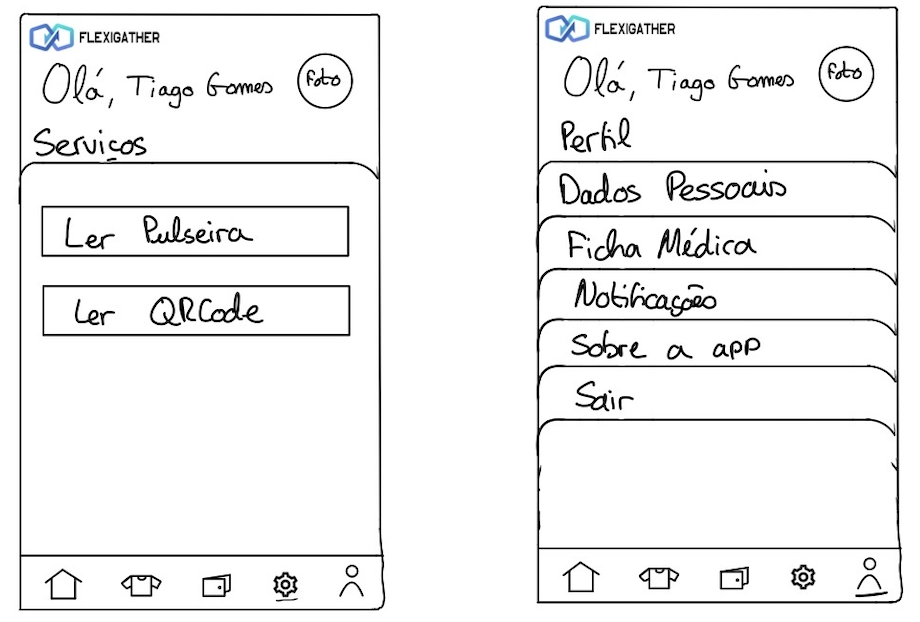 FLEXIGATHER
Olá, Tiago Gomes
Foto
Serviços
Ler Pulseira
Ler QRCode
FLEXIGATHER
Olá, Tiago Gomes
Foto
Perfil
Dados Pessoais
Ficha Médica
Notificações
Sobre a app
Sair